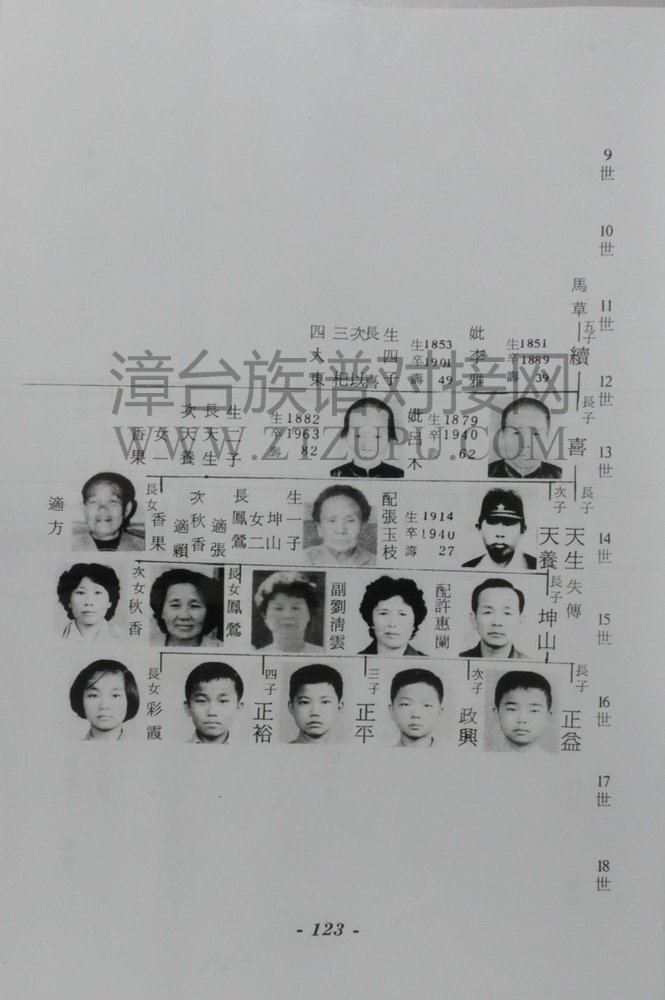 9世
10世
11世
12世
13世
14世
15世
16世
17世
18世
馬草
五子
續
生1851
卒1889
壽39
妣李雅
生1853
卒1901
壽49
生四子
長喜
次以
三杞
四大東
長子
喜
生1879
卒1940
62
妣呂木
生1882
卒1963
壽82
生二子
長天生
次天養
女一
香果
長子
天生
失傳
次子
天養
生1914
卒1940
壽27
配張玉枝
生一子
坤山
女二
長鳳鶯
適張
次秋香
適賴
長女
香果
適方
長子
坤山
配許惠蘭
副劉清雲
長女
鳳鶯
次女
秋香
長子
正益
次子
政興
三子
正平
四子
正裕
長女
彩霞
漳台族谱对接网
WWW.ZTZUPU.COM
- 123 -